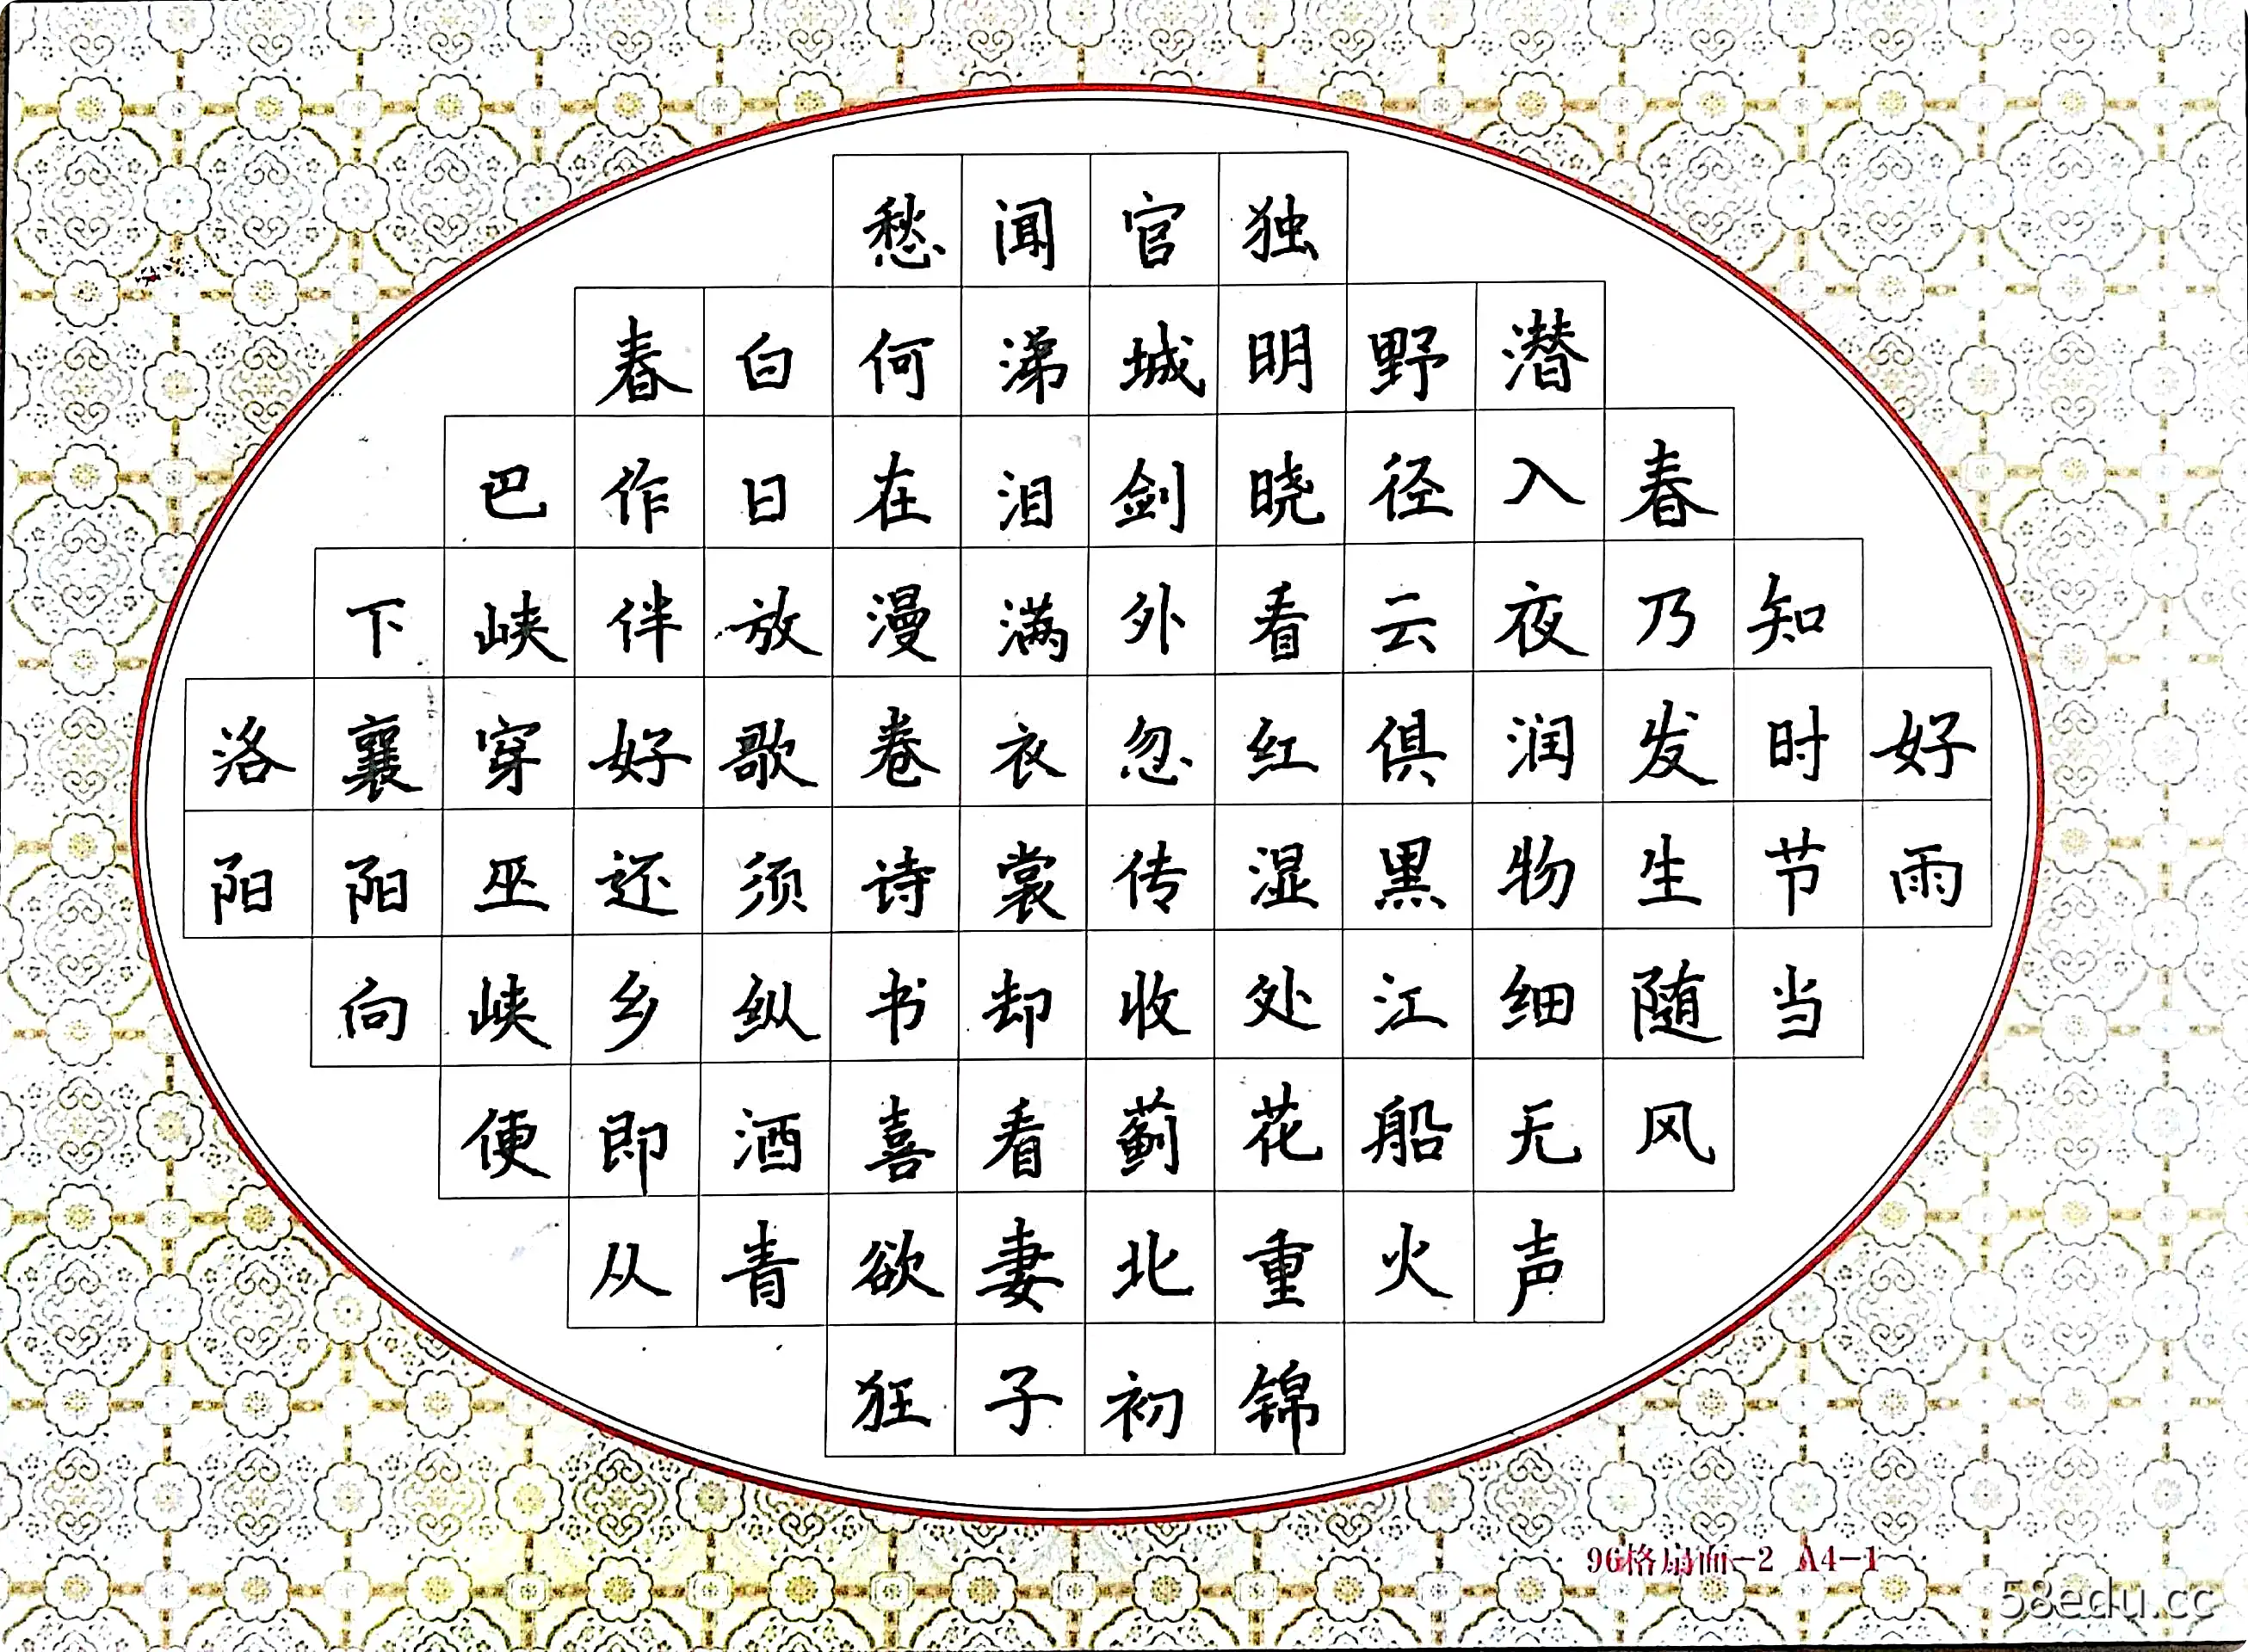 好雨
知时节当
春乃发生随风
潜入夜润物细无声
野径云俱黑江船火
独明晓看红湿处花重锦
官城剑外忽传收蓟北初
闻涕泪满衣裳却看妻子
愁何在漫卷诗书喜欲狂
白日放歌须纵酒青
春作伴好还乡即从
巴峡穿巫峡便
下襄阳向
洛阳
96格扇面-2 A4-1
58edu.cc